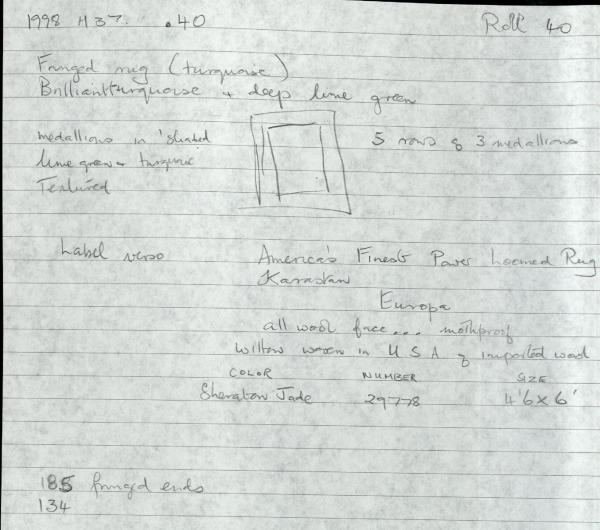 1998 H37. .40 Roll 40
Fringed rug (turquoise)
Brilliant turquoise + deep lime green
medallions in 'shaded 5 rows of 3 medallions
lime green + turquoise
Textured
Label verso America's Finest Power Loomed Rug
Karastan
Europa
all wool face... mothproof
woven in USA of imported wool
COLOR NUMBER SIZE
Sheraton Jade 29778 4'6 x 6'
185 fringed ends
134